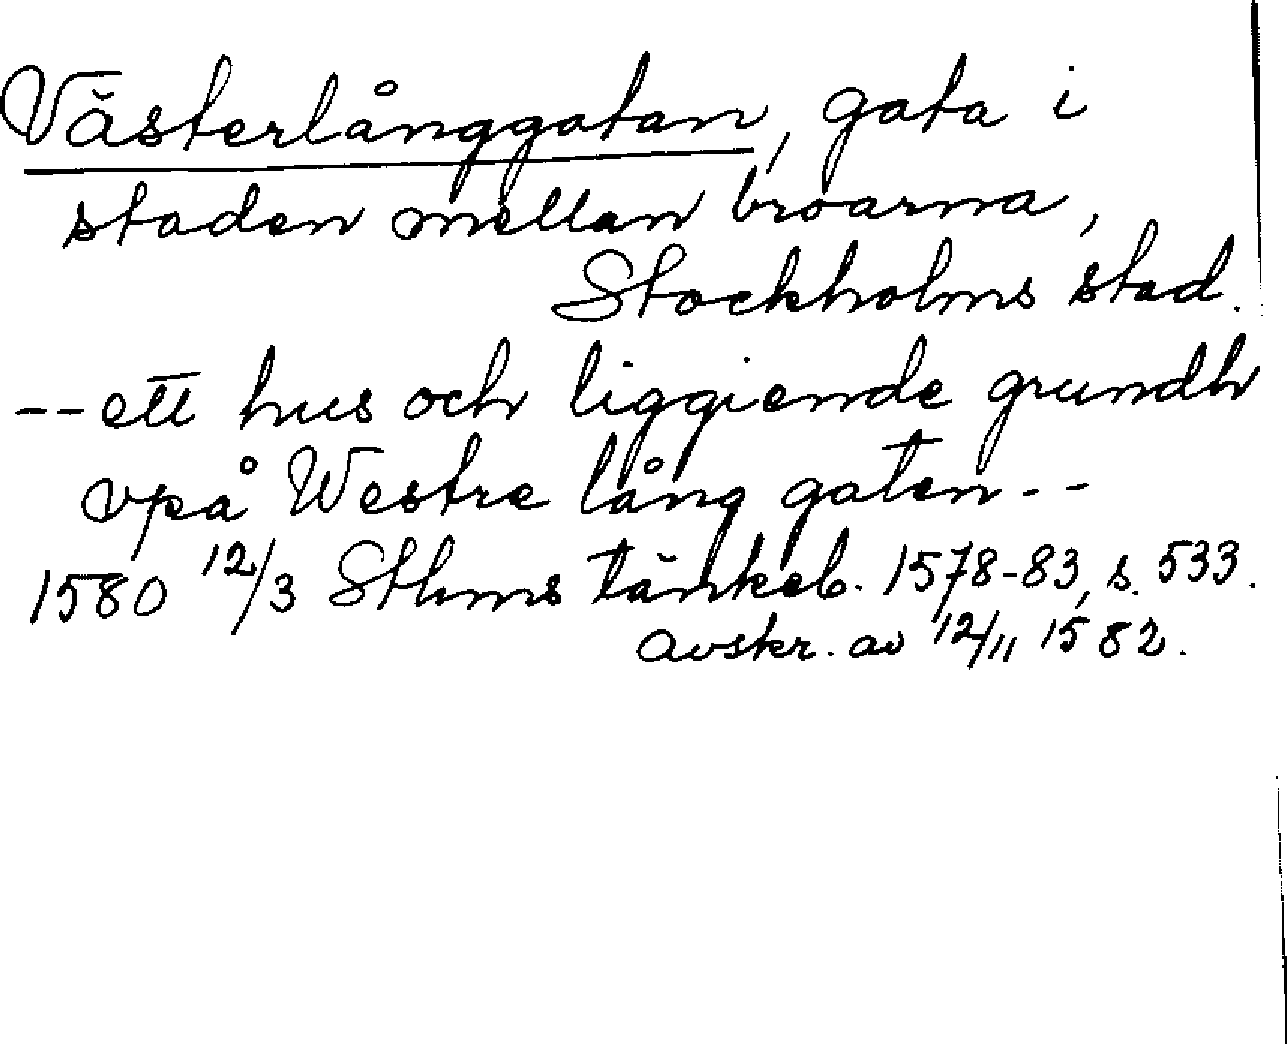 Västerlånggatan, gata i
staden mellan broarna,
Stockholms stad.
-- ett hus och liggiende grundh
vpå Westre lång gaten --
1580 12/3 Sthms tänkeb. 1578-83, s. 533.
avskr. av 12/11 1582.